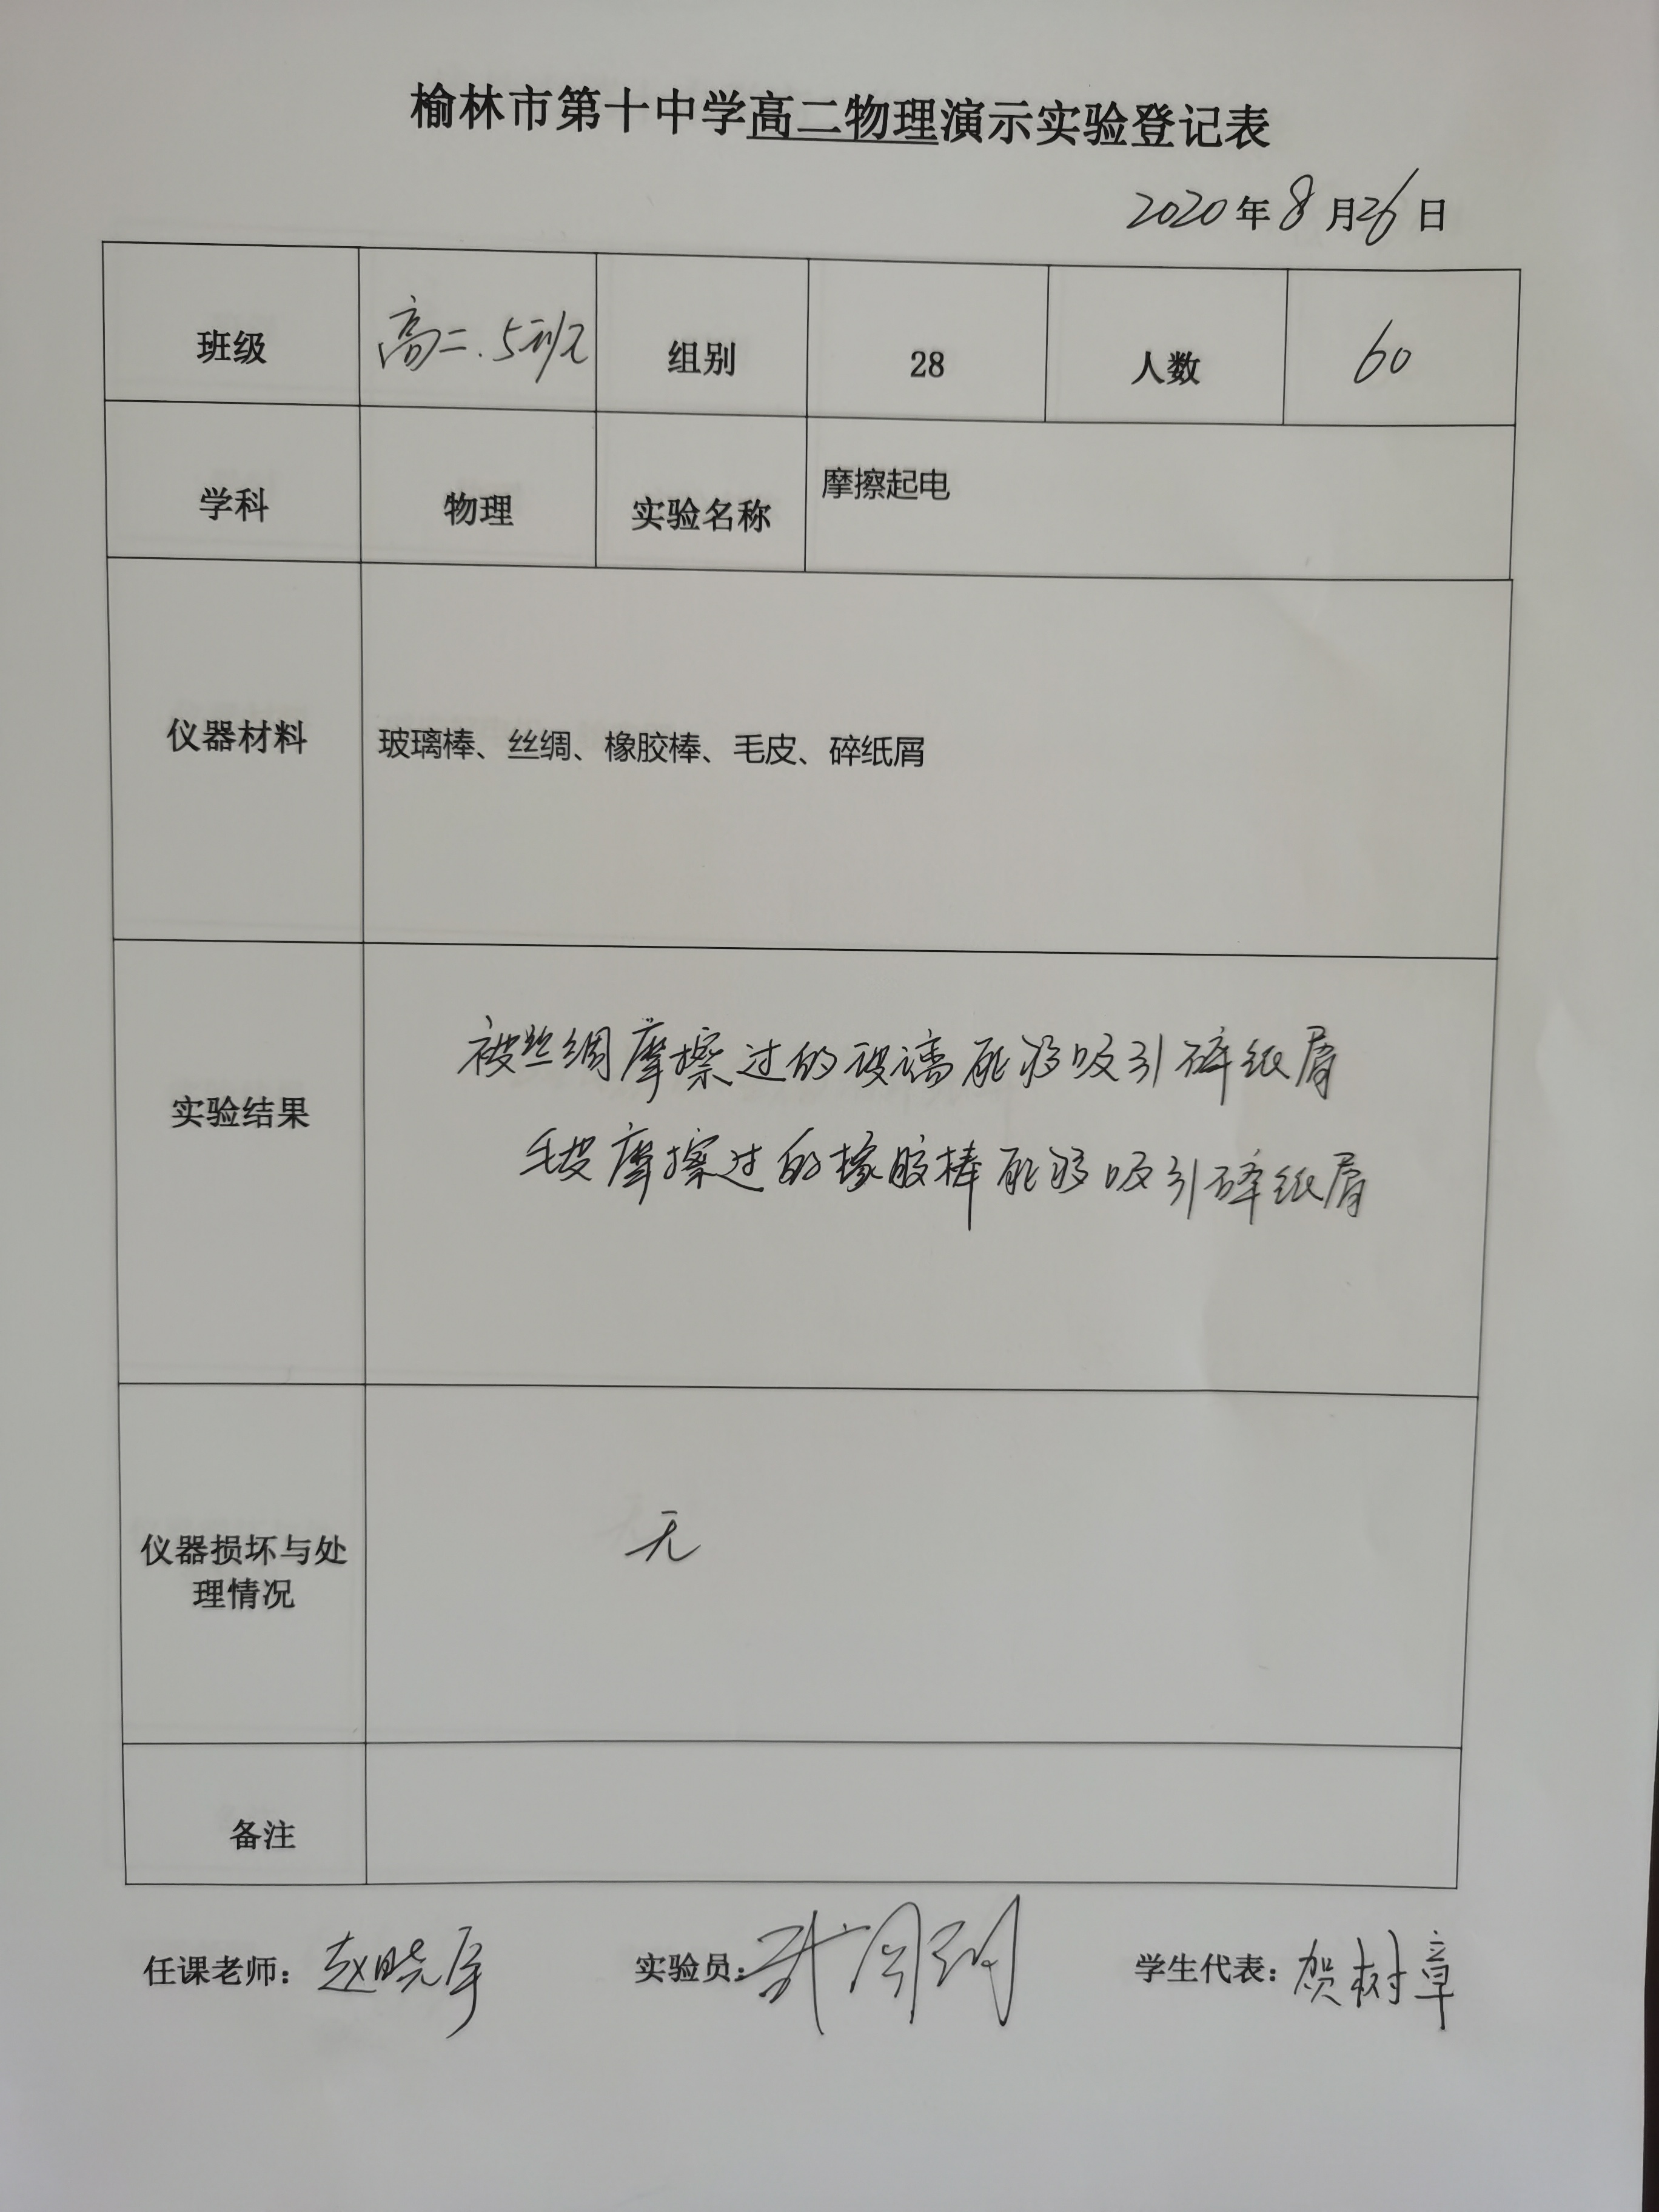 榆林市第十中学高二物理演示实验登记表
2020年8月26日
班级 高二.5班 组别 28 人数 60
学科 物理 实验名称 摩擦起电
仪器材料 玻璃棒、丝绸、橡胶棒、毛皮、碎纸屑
被丝绸摩擦过的玻璃能够吸引碎纸屑
实验结果
毛皮摩擦过的橡胶棒能够吸引碎纸屑
仪器损坏与处
理情况
无
备注
任课老师：赵晓 实验员： 学生代表：贺树章